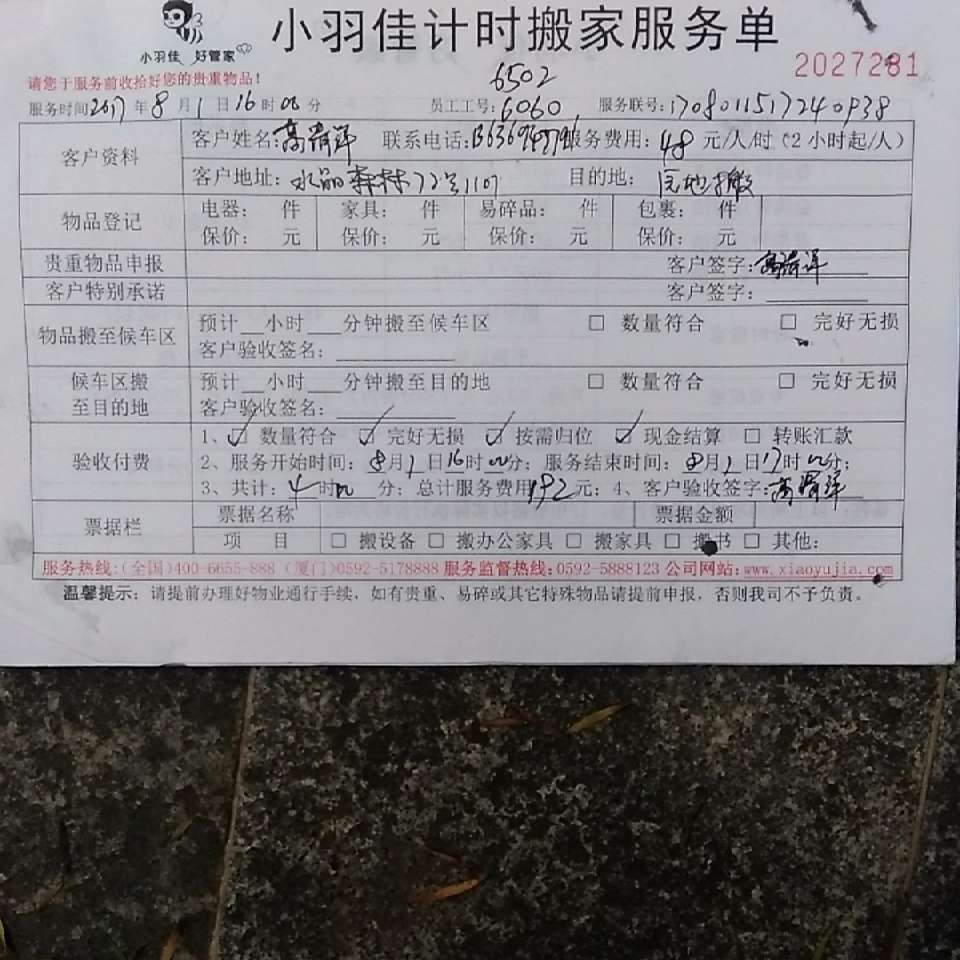 小羽佳 好管家
小羽佳计时搬家服务单
2027281
请您于服务前收拾好您的贵重物品!
6502
服务时间2017年8月1日16时00分 员工工号:6060 服务联号:1708011517240938
客户资料
客户姓名: 联系电话: 服务费用:48元/人/时(2小时起/人)
客户地址:水晶森林72号1107 目的地:原地搬
物品登记
电器: 件 家具: 件 易碎品: 件 包裹: 件
保价: 元 保价: 元 保价: 元 保价: 元
贵重物品申报 客户签字:
客户特别承诺 客户签字:
物品搬至候车区
预计__小时___分钟搬至候车区 □ 数量符合 □ 完好无损
客户验收签名:
候车区搬至目的地
预计__小时___分钟搬至目的地 □ 数量符合 □ 完好无损
客户验收签名:
验收付费
1、☑ 数量符合 ☑ 完好无损 ☑ 按需归位 ☑ 现金结算 □ 转账汇款
2、服务开始时间:8月1日16时00分;服务结束时间:8月1日17时00分;
3、共计:4时00分;总计服务费用192元;4、客户验收签字:
票据栏
票据名称 票据金额
项 目 □ 搬设备 □ 搬办公家具 □ 搬家具 □ 搬书 □ 其他:
服务热线:(全国)400-6655-888 (厦门)0592-5178888 服务监督热线:0592-5888123 公司网站:www.xiaoyujia.com
温馨提示:请提前办理好物业通行手续,如有贵重、易碎或其它特殊物品请提前申报,否则我司不予负责。